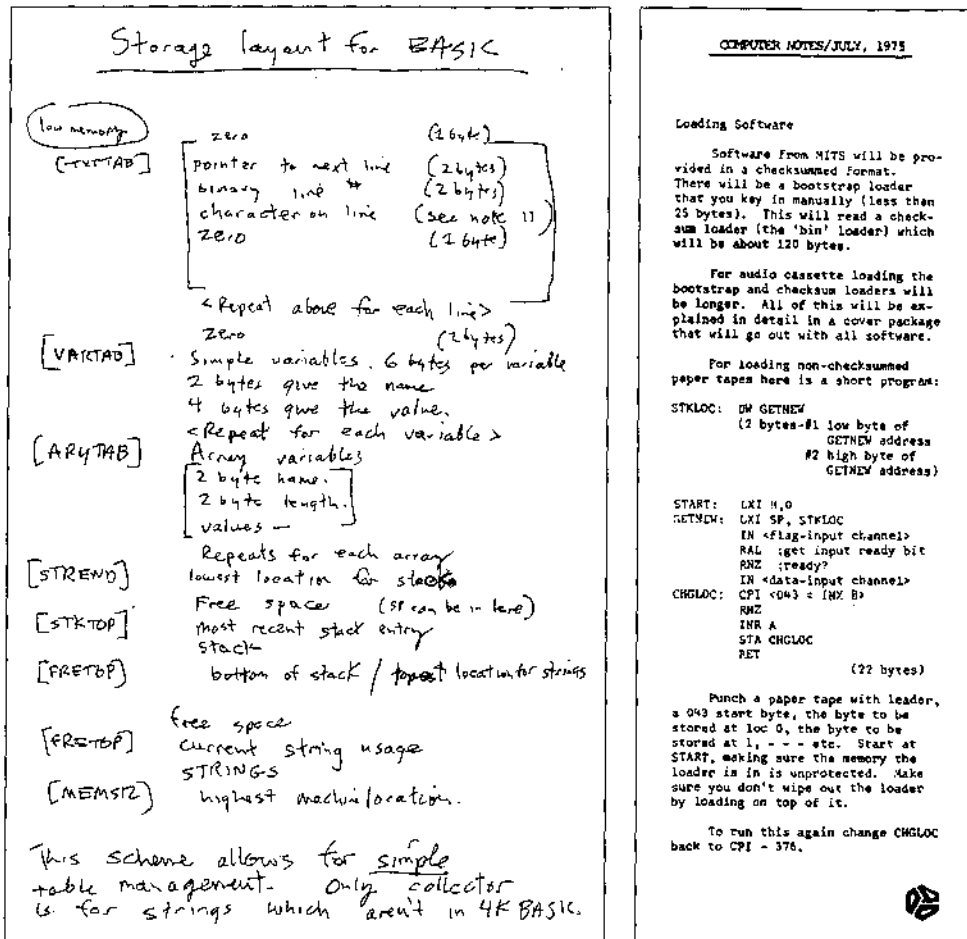 Storage layout for BASIC
low memory
zero (1 byte)
[TXTTAB] pointer to next line (2 bytes)
binary line # (2 bytes)
character on line (see note 1)
zero (1 byte)
<Repeat above for each line>
zero (2 bytes)
[VARTAB] Simple variables. 6 bytes per variable
2 bytes give the name
4 bytes give the value.
<Repeat for each variable>
[ARYTAB] Array variables
2 byte name.
2 byte length.
values —
Repeats for each array
[STREND] lowest location for stack
Free space (SP can be in here)
[STKTOP] most recent stack entry
stack
[FRETOP] bottom of stack / location for strings
free space
[FRETOP] current string usage
STRINGS
[MEMSIZ] highest machine location.
This scheme allows for simple
table management. Only collector
is for strings which aren't in 4K BASIC.
COMPUTER NOTES/JULY, 1975
Loading Software
Software from MITS will be pro-
vided in a checksummed format.
There will be a bootstrap loader
that you key in manually (less than
25 bytes). This will read a check-
sum loader (the 'bin' loader) which
will be about 120 bytes.
For audio cassette loading the
bootstrap and checksum loaders will
be longer. All of this will be ex-
plained in detail in a cover package
that will go out with all software.
For loading non-checksummed
paper tapes here is a short program:
STKLOC: DW GETNEW
(2 bytes-#1 low byte of
GETNEW address
#2 high byte of
GETNEW address)
START: LXI H,0
GETNEW: LXI SP, STKLOC
IN <flag-input channel>
RAL ;get input ready bit
RNZ ;ready?
IN <data-input channel>
CHGLOC: CPI <043 = INX B>
RNZ
INR A
STA CHGLOC
RET
(22 bytes)
Punch a paper tape with leader,
a 043 start byte, the byte to be
stored at loc 0, the byte to be
stored at 1, - - - etc. Start at
START, making sure the memory the
loader is in is unprotected. Make
sure you don't wipe out the loader
by loading on top of it.
To run this again change CHGLOC
back to CPI - 376.